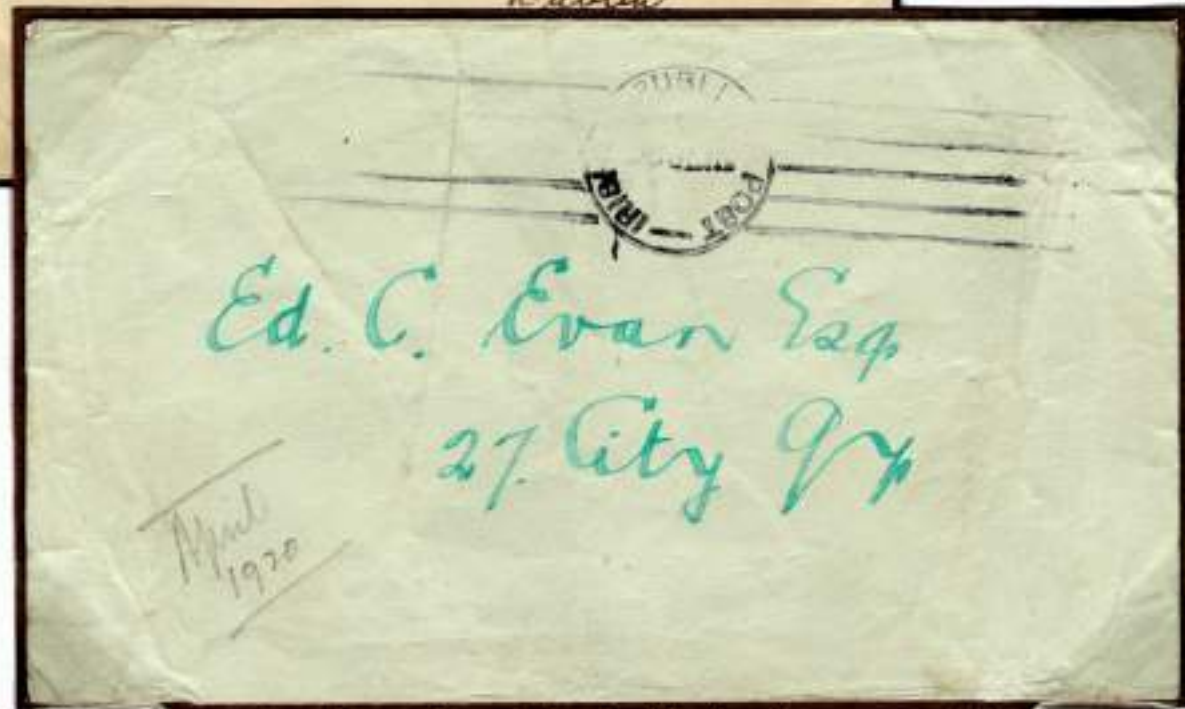 IRISH POST
Ed. C. Evan Esq
27. City Qy
April
1920